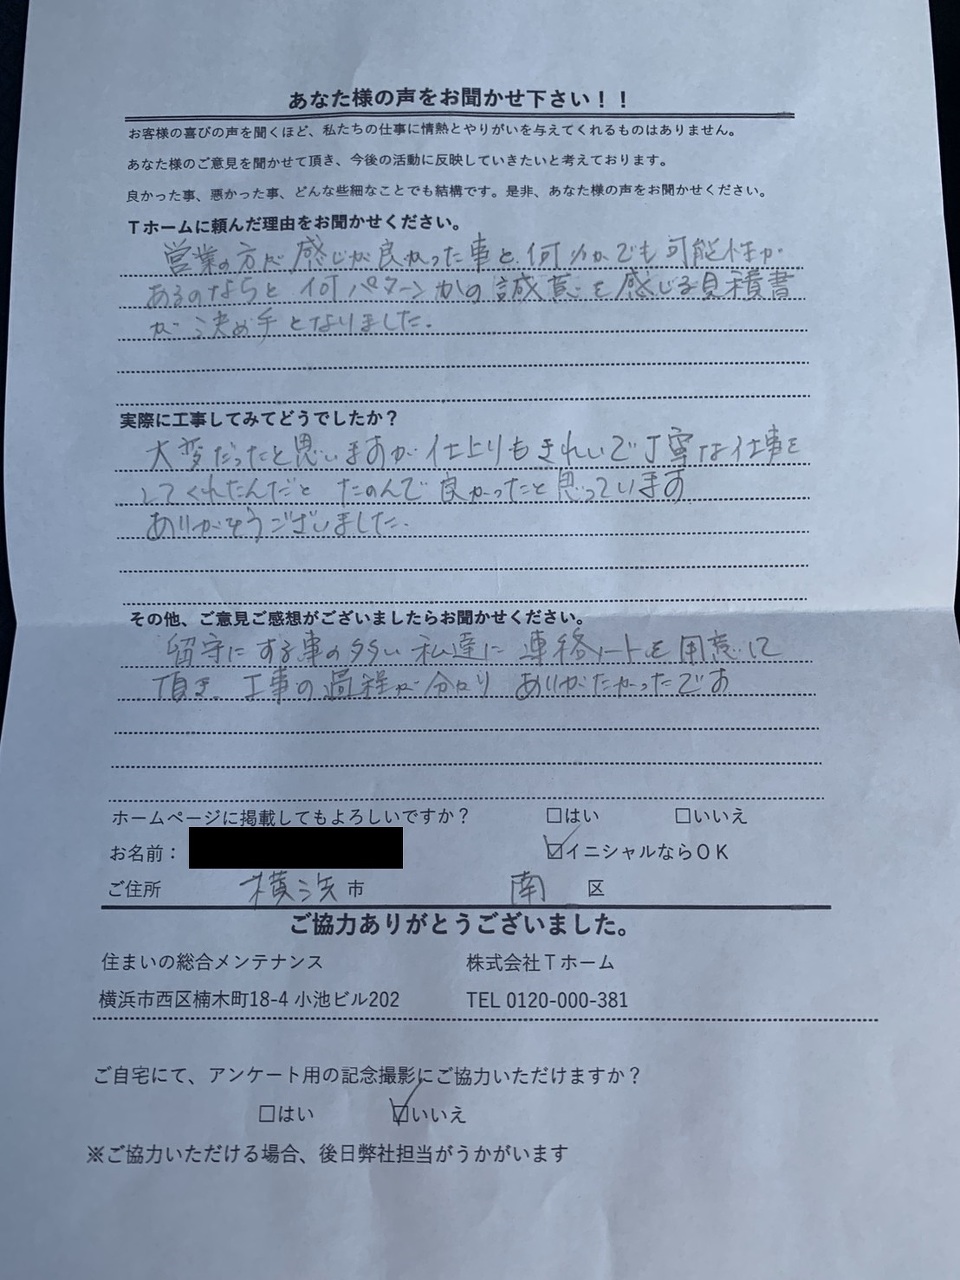 あなた様の声をお聞かせ下さい！！
お客様の喜びの声を聞くほど、私たちの仕事に情熱とやりがいを与えてくれるものはありません。
あなた様のご意見を聞かせて頂き、今後の活動に反映していきたいと考えております。
良かった事、悪かった事、どんな些細なことでも結構です。是非、あなた様の声をお聞かせください。
Tホームに頼んだ理由をお聞かせください。
営業の方が感じが良かった事と、何かでも可能性が
あるのならと何パターンかの誠意を感じる見積書
が決め手となりました。
実際に工事してみてどうでしたか？
大変だったと思いますが仕上りもきれいで丁寧な仕事を
してくれたんだと たのんで良かったと思っています
ありがとうございました。
その他、ご意見ご感想がございましたらお聞かせください。
留守にする事の多い私達に連絡ノートを用意して
頂き、工事の過程が分かり ありがたかったです
ホームページに掲載してもよろしいですか？ □はい □いいえ
お名前： ☑イニシャルならOK
ご住所 横浜市 南区
ご協力ありがとうございました。
住まいの総合メンテナンス 株式会社Tホーム
横浜市西区楠木町18-4 小池ビル202 TEL 0120-000-381
ご自宅にて、アンケート用の記念撮影にご協力いただけますか？
□はい ☑いいえ
※ご協力いただける場合、後日弊社担当がうかがいます